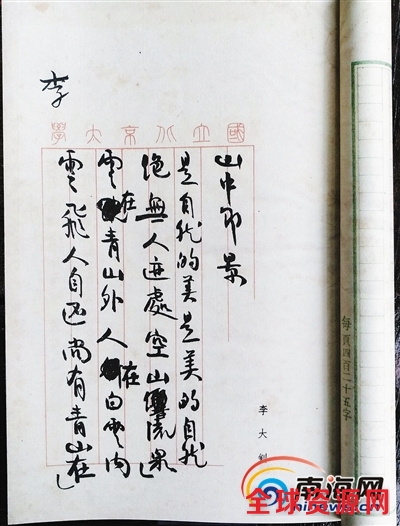 國立北京大學
山中即景
是自然的美是美的自然
絕無人迹處空山響流泉
雲在青山外人在白雲内
雲飛人自还尚有青山在
李
每頁四百二十五字
李大釗
南海网
全球资源网